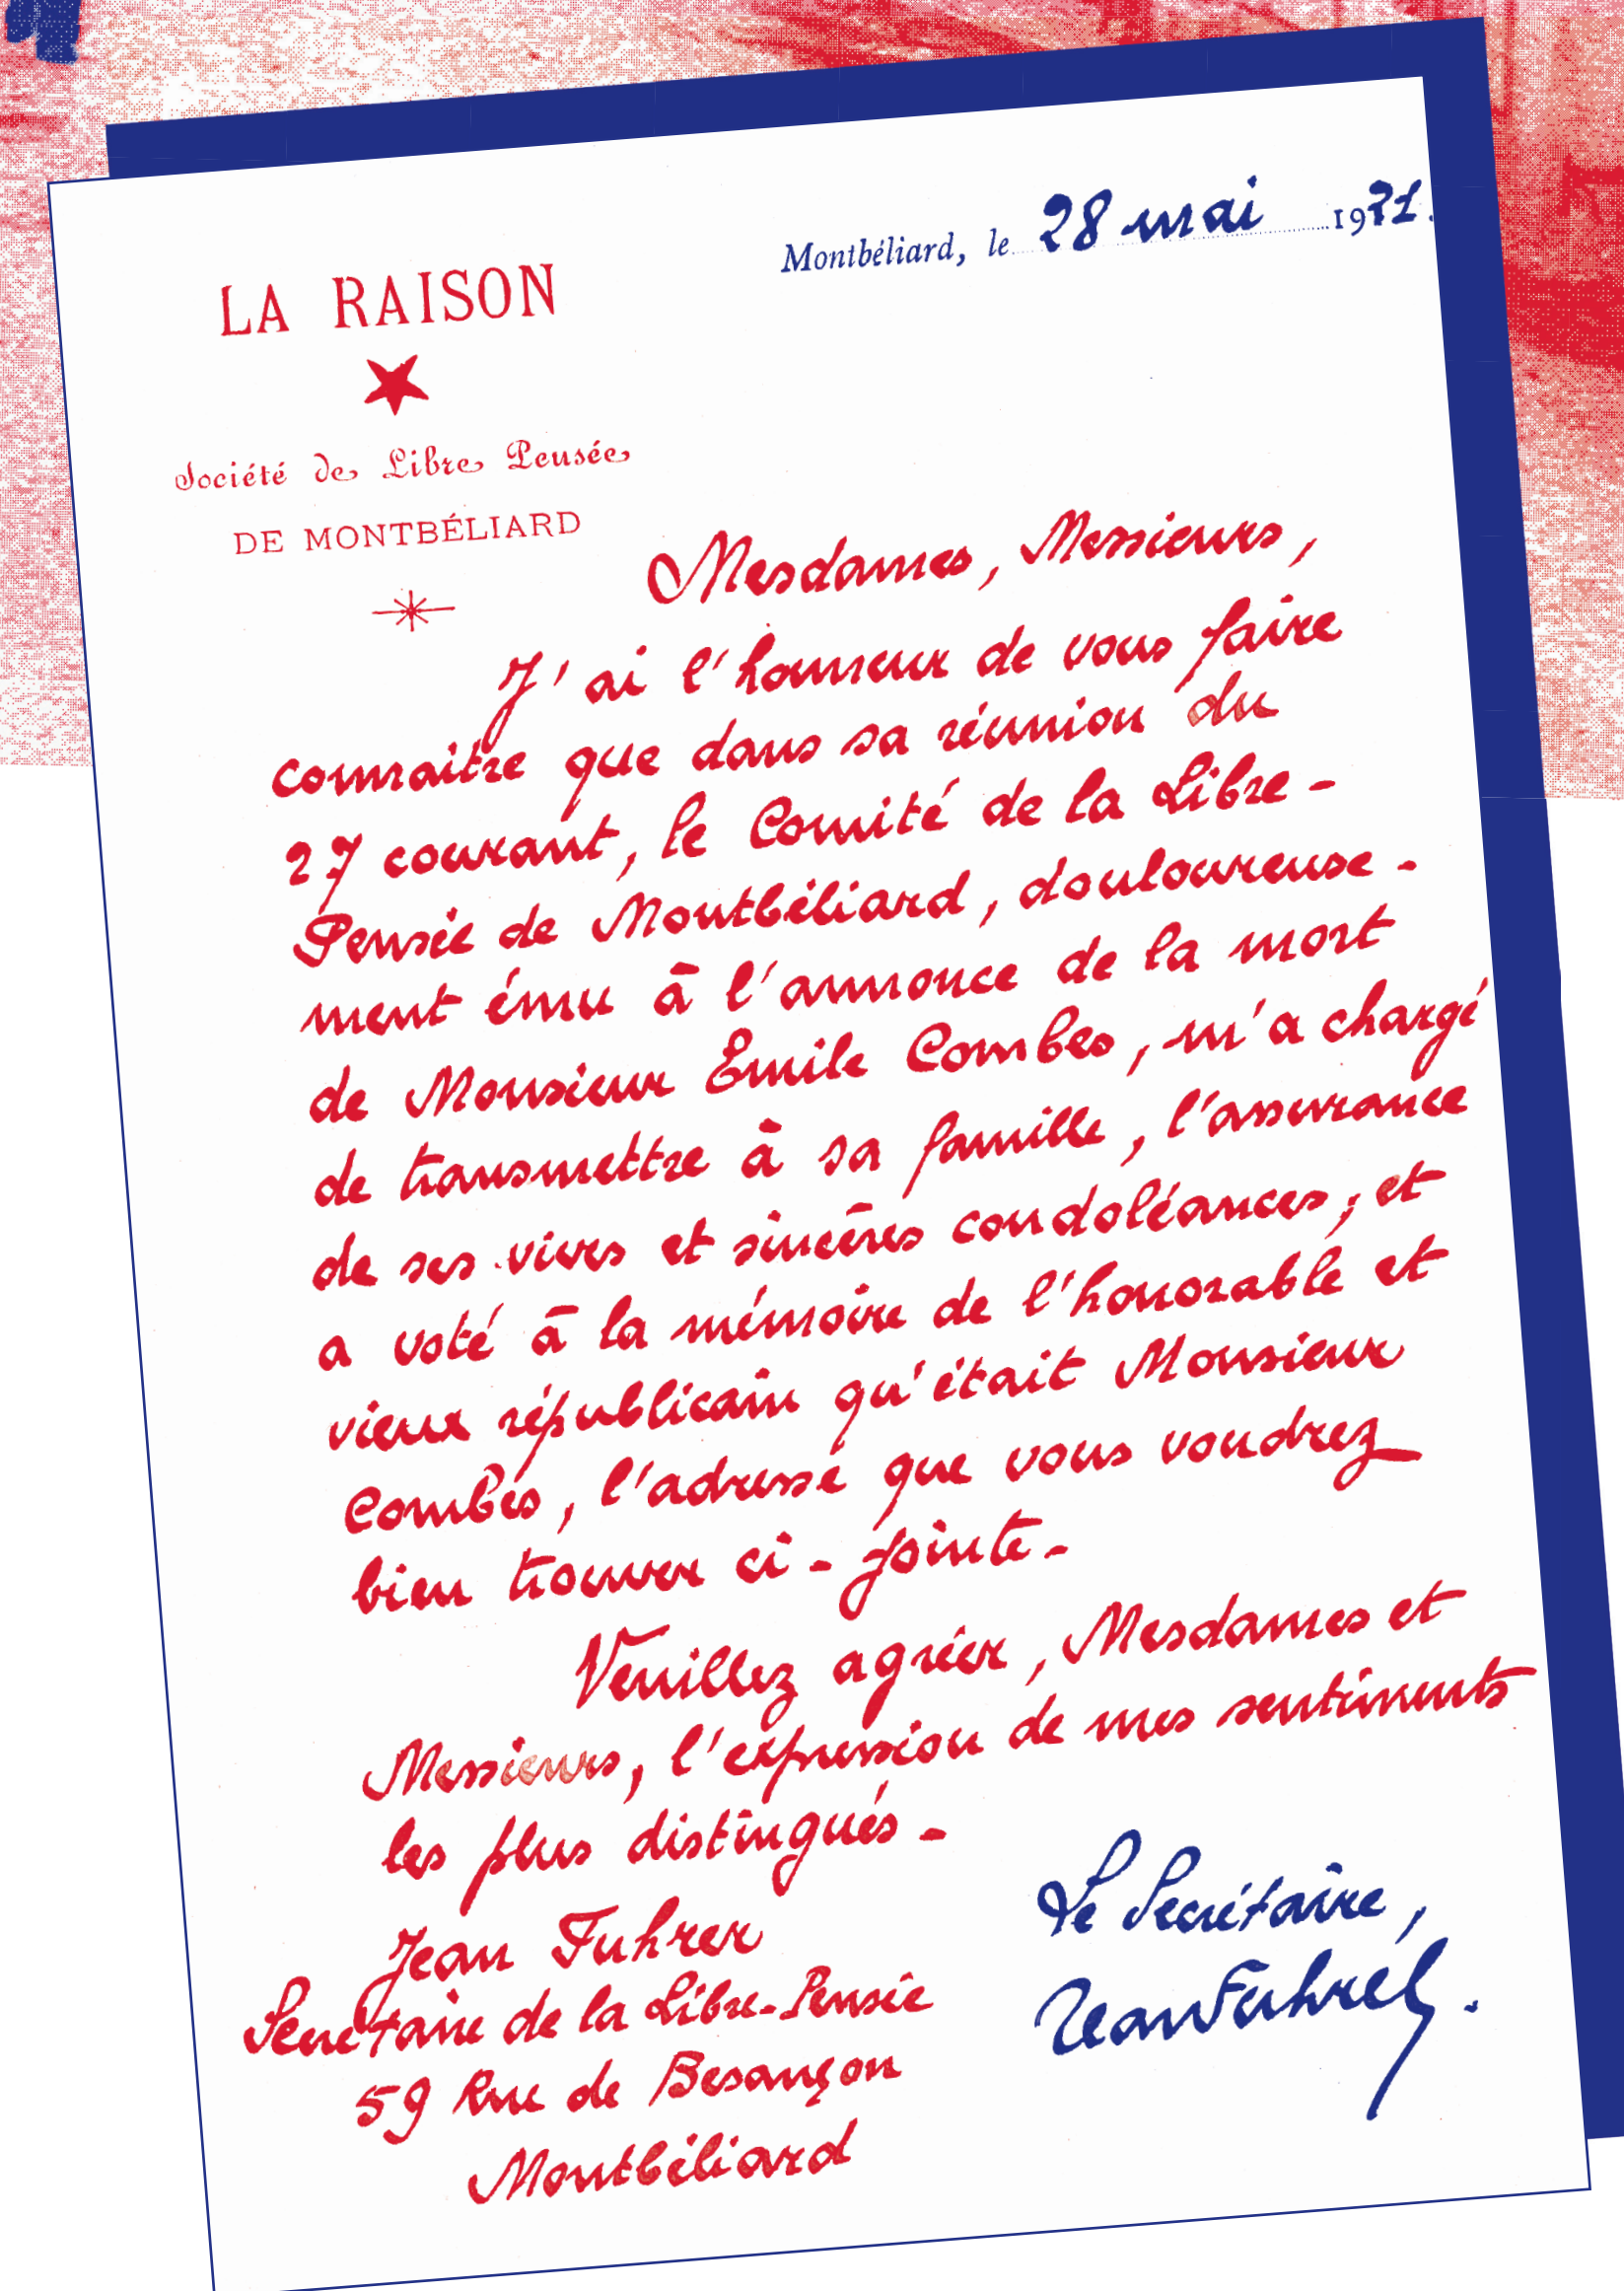 Montbéliard, le 28 mai 1921.
LA RAISON
Société de Libre Pensée
DE MONTBÉLIARD
Mesdames, Messieurs,
J'ai l'honneur de vous faire
connaitre que dans sa réunion du
27 courant, le Comité de la Libre-
Pensée de Montbéliard, douloureuse-
ment ému à l'annonce de la mort
de Monsieur Emile Combes, m'a chargé
de transmettre à sa famille, l'assurance
de ses vives et sincères condoléances, et
a voté à la mémoire de l'honorable et
vieux républicain qu'était Monsieur
Combes, l'adresse que vous voudrez
bien trouver ci-jointe-
Veuillez agréer, Mesdames et
Messieurs, l'expression de mes sentiments
les plus distingués-
Le Secrétaire,
Jean Fuhrer.
Jean Fuhrer
Secrétaire de la Libre-Pensée
59 Rue de Besançon
Montbéliard